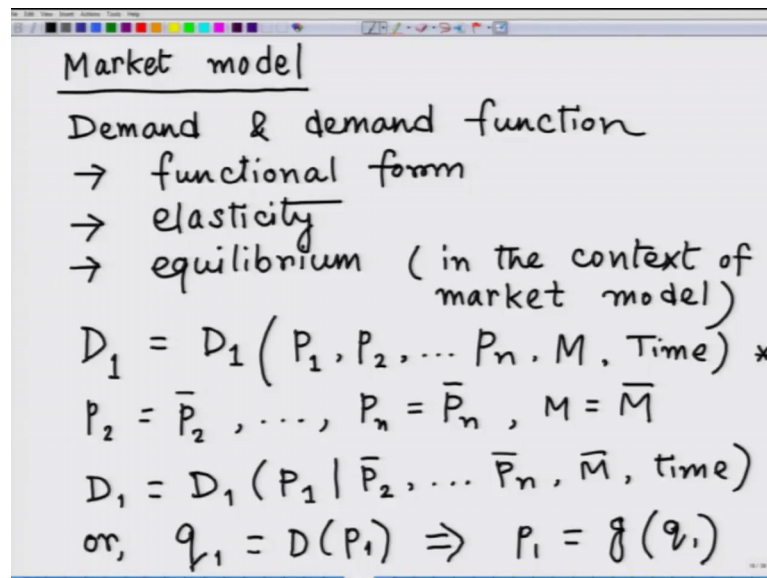 Market model
Demand & demand function
→ functional form
→ elasticity
→ equilibrium (in the context of
market model)
D₁ = D₁ (P₁, P₂, ... Pₙ, M, Time) *
P₂ = P̄₂, ..., Pₙ = P̄ₙ, M = M̄
D₁ = D₁ (P₁ | P̄₂, ... P̄ₙ, M̄, time)
or, q₁ = D(P₁) ⇒ P₁ = g(q₁)